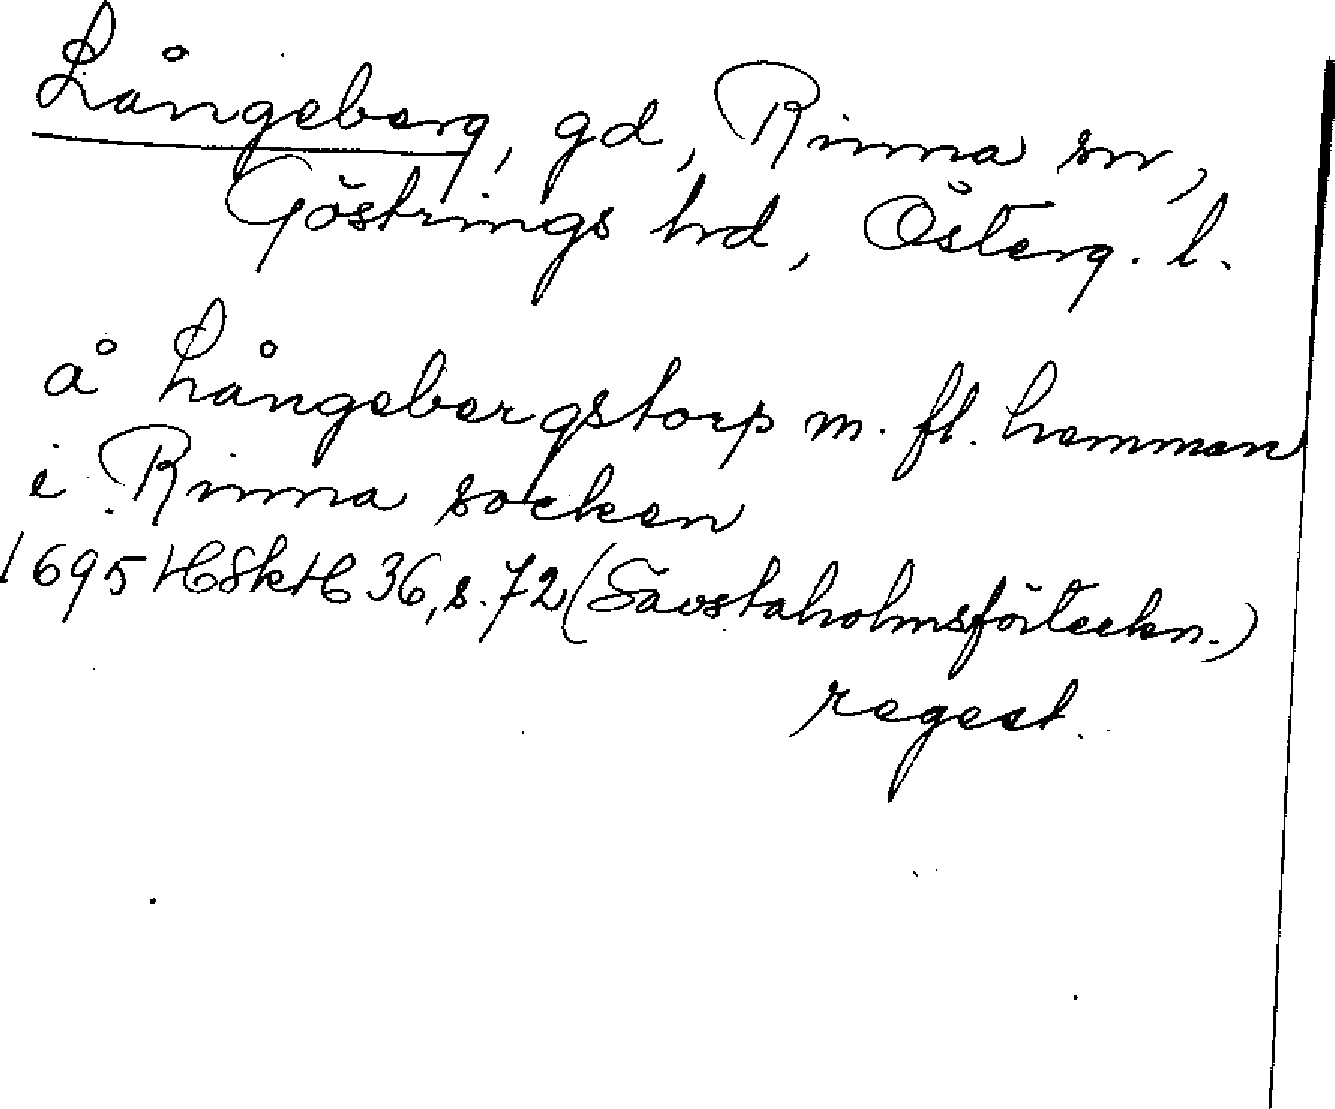 Långeberg, gd, Rinna sn,
Göstrings hrd, Österg. l.
å Långebergstorp m. fl. hemman
i Rinna socken
1695 HSkH 36, s. 72 (Sävstaholmsförteckn.)
regest.